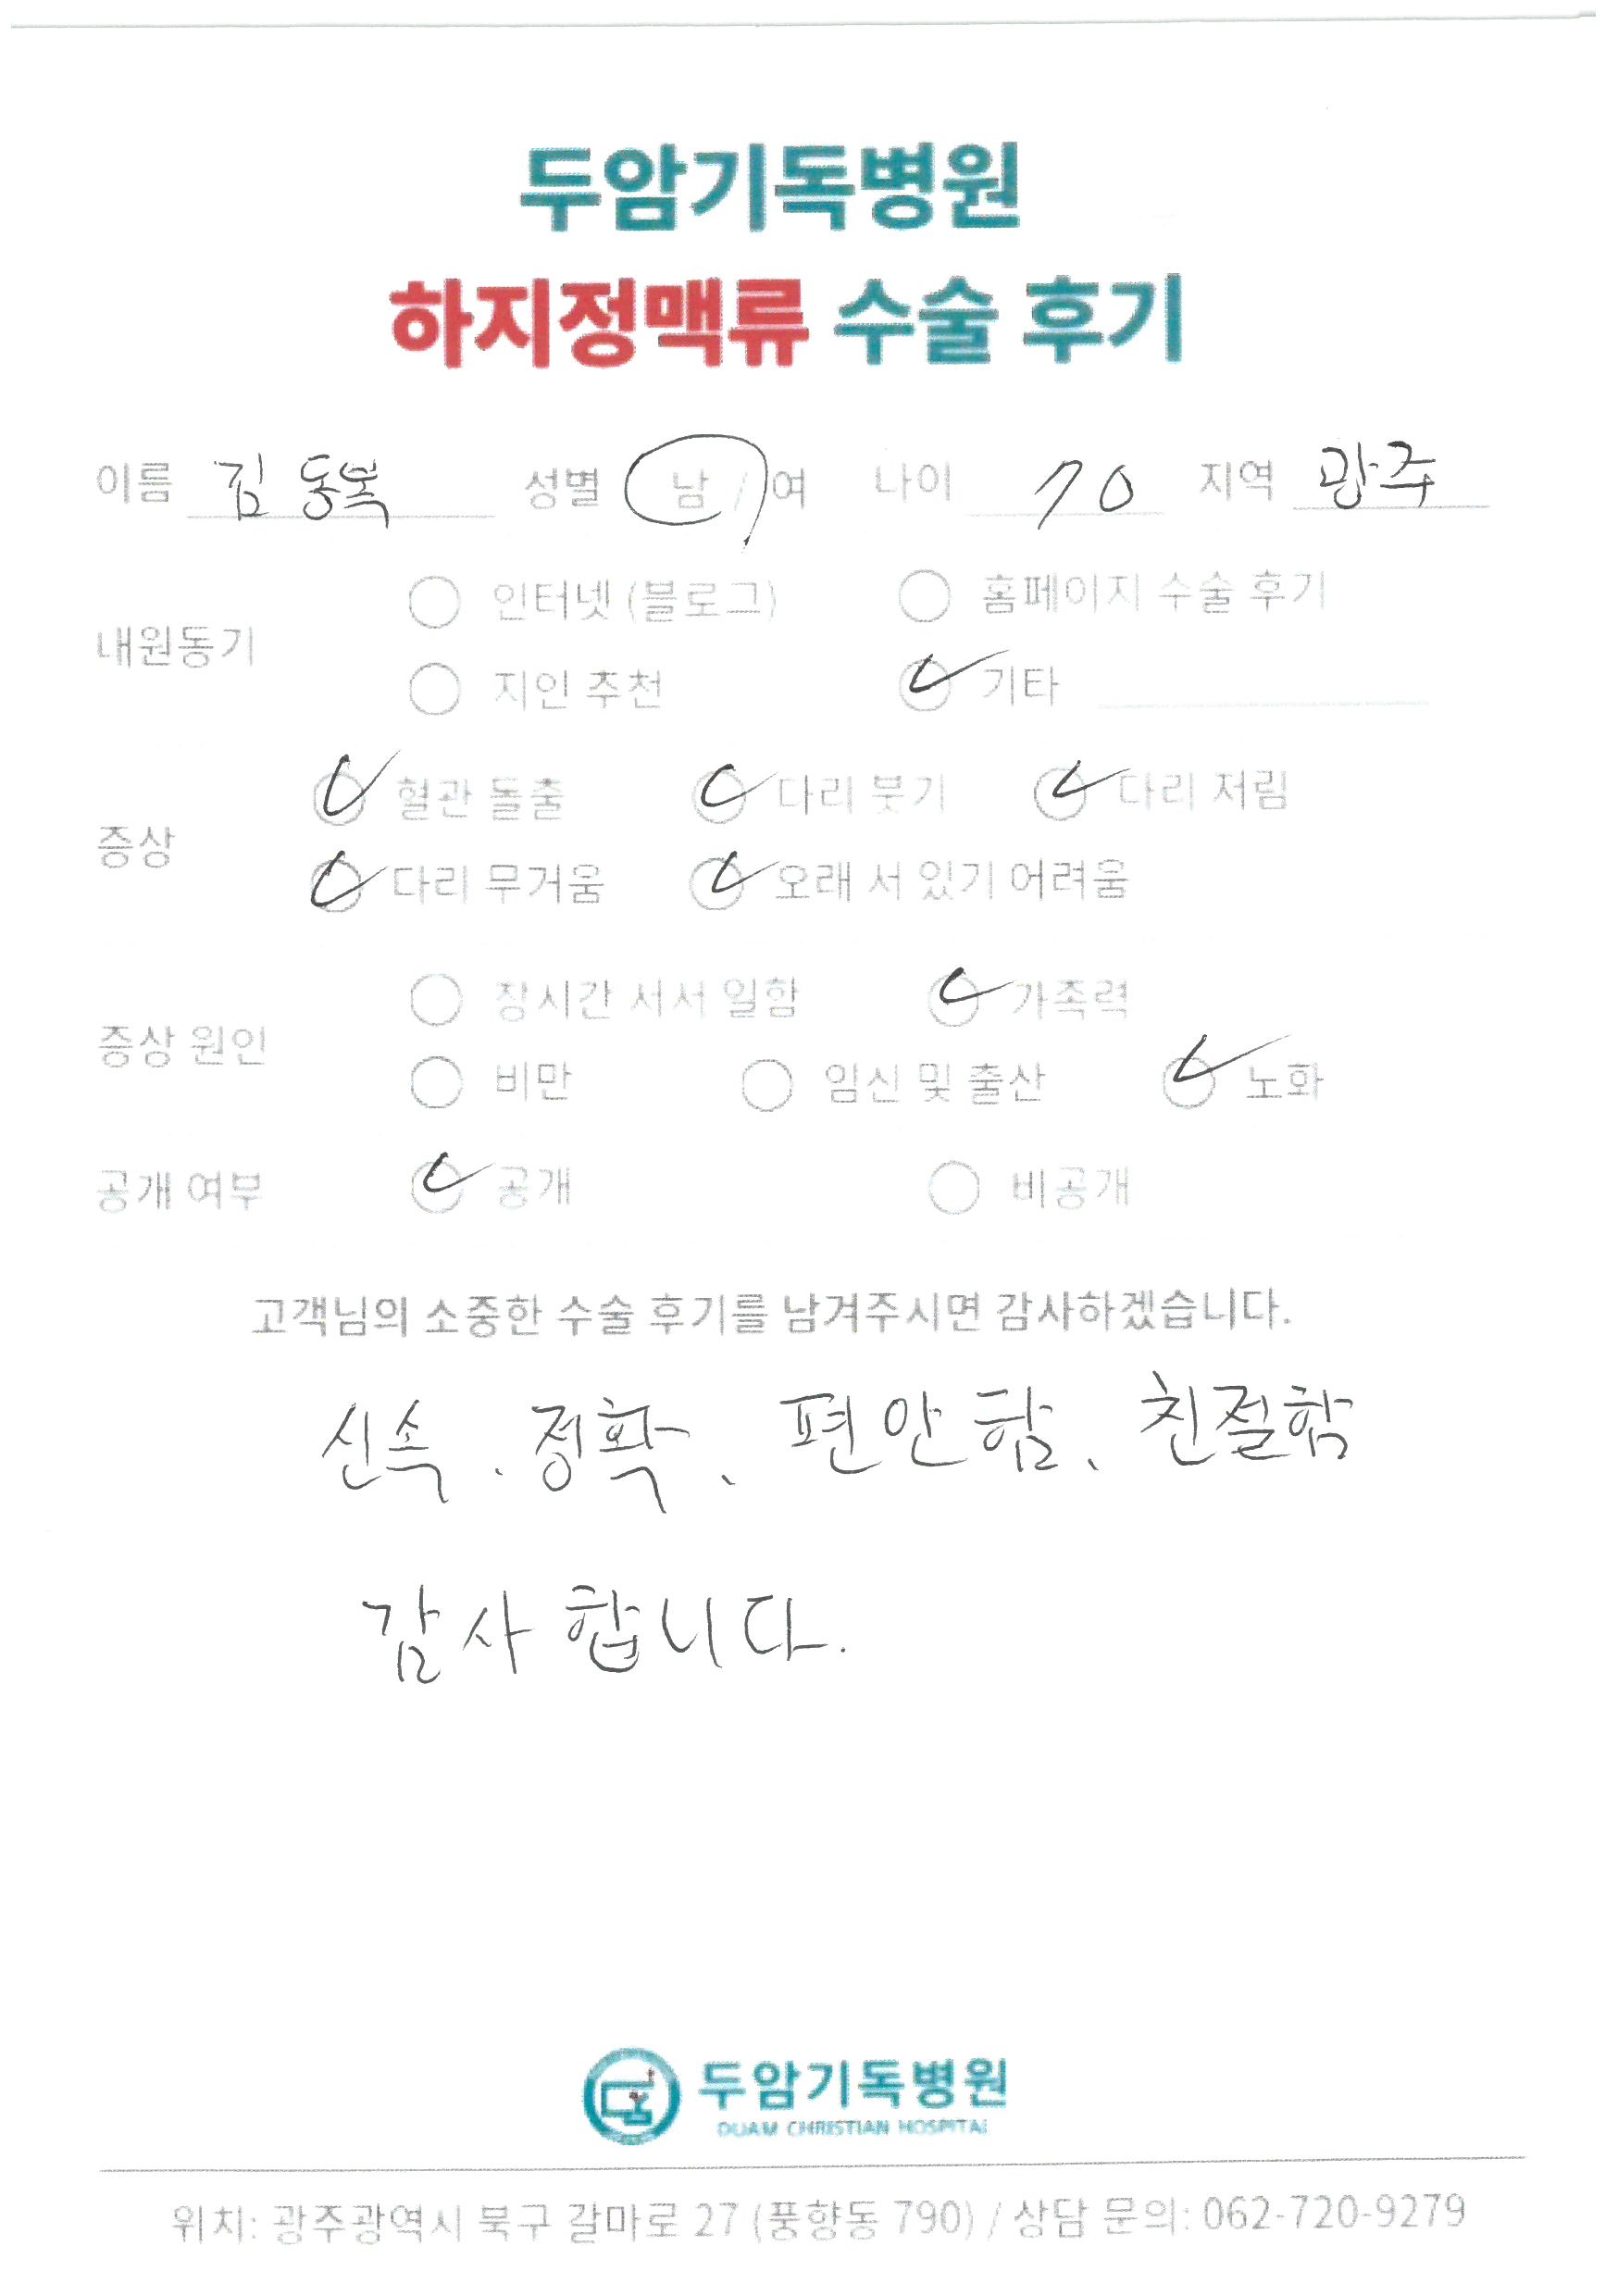 두암기독병원
하지정맥류 수술 후기
이름 김동복 성별 남 / 여 나이 70 지역 광주
인터넷 (블로그) 홈페이지 수술 후기
내원동기
지인 추천 기타
혈관 돌출 다리 붓기 다리 저림
증상
다리 무거움 오래 서 있기 어려움
장시간 서서 일함 가족력
증상 원인
비만 임신 및 출산 노화
공개 여부 공개 비공개
고객님의 소중한 수술 후기를 남겨주시면 감사하겠습니다.
신속、정확、편안함、친절함
감사합니다.
두암기독병원
DUAM CHRISTIAN HOSPITAL
위치: 광주광역시 북구 갈마로 27 (풍향동 790) / 상담 문의: 062-720-9279